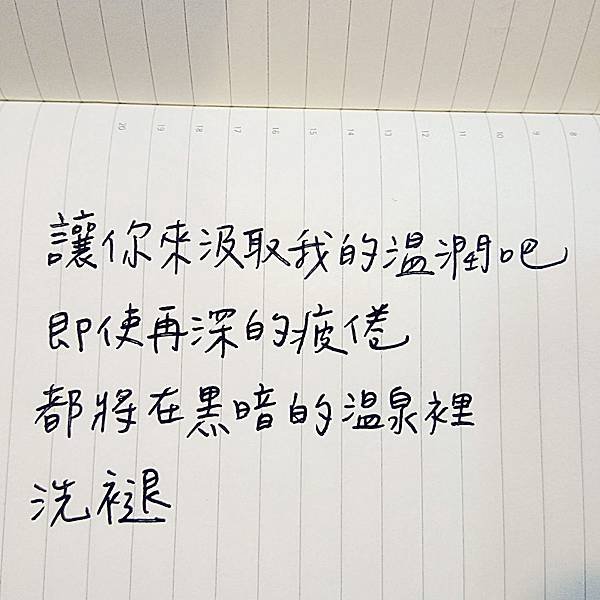 讓你來汲取我的溫潤吧
即使再深的疲倦
都將在黑暗的溫泉裡
洗褪
20 19 18 17 16 15 14 13 12 11 10 9 8